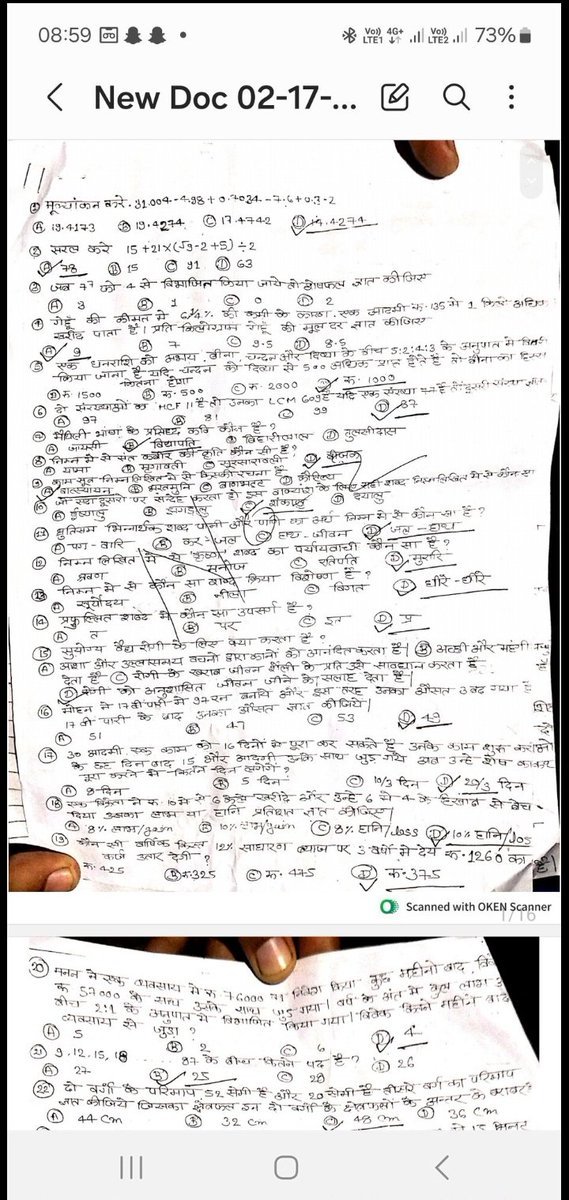 08:59
Vo)) 4G+
LTE1
Vo))
LTE2
73%
New Doc 02-17-...
11
① मूल्यांकन करे. 31.004 - 4.98 + 0.7034 - 7.6 + 0.3 - 2
Ⓐ 19.4173 Ⓑ 19.4274 Ⓒ 17.4742 Ⓓ 17.4274
② सरल करे 15 + 21 × (√9 - 2 + 5) ÷ 2
Ⓐ 78 Ⓑ 15 Ⓒ 91 Ⓓ 63
③ जब को 4 से विभाजित किया जाये तो शेषफल ज्ञात कीजिए
Ⓐ 3 Ⓑ 1 Ⓒ 0 Ⓓ 2
④ गेहूँ की कीमत में की कमी के कारण, एक आदमी रू. 135 में 1 किग्रा अधिक
खरीद पाता है। प्रति किलोग्राम गेहूँ की मूल दर ज्ञात कीजिए
Ⓐ 9 Ⓑ 7 Ⓒ 9.5 Ⓓ 8.5
⑤ एक धनराशि को अभय, बीना, चन्दन और दिव्या के बीच 5:2:4:3 के अनुपात में
किया जाता है यदि चन्दन को दिव्या से 500 अधिक प्राप्त होते है तो बीना का हिस्सा
कितना होगा
Ⓐ रू. 1500 Ⓑ रू. 500 Ⓒ रू. 2000 Ⓓ रू. 1000
⑥ दो संख्याओं का HCF 11 है तो उनका LCM 609 है यदि एक संख्या 77 है तो दूसरी संख्या
Ⓐ 97 Ⓑ 81 Ⓒ 99 Ⓓ 87
⑦ मैथिली भाषा के प्रसिद्ध कवि कौन है ?
Ⓐ जायसी Ⓑ विद्यापति Ⓒ बिहारीलाल Ⓓ तुलसीदास
⑧ निम्न में से संत कबीर की कृति कौन सी है ?
Ⓑ मृगावती Ⓒ सूरसारावली Ⓓ बीजक
⑨ काम सूत्र निम्नलिखित में से किसकी रचना है
Ⓐ वात्स्यायन Ⓑ भरतमुनि Ⓒ बाणभट्ट Ⓓ कौटिल्य
⑩ जो सदा दूसरो पर संदेह करता हो इस वाक्यांश के लिए सही शब्द निम्नलिखित में से कौन सा
Ⓐ ईर्ष्यालु Ⓑ झगड़ालू Ⓒ शंकालु Ⓓ दयालु
⑪ श्रुतिसम भिन्नार्थक शब्द पानी और पाणी का अर्थ निम्न में से कौन सा है ?
Ⓐ पग - वारि Ⓑ कर - जल Ⓒ हाथ - जीवन Ⓓ जल - हाथ
⑫ निम्न लिखित में से 'कृष्ण' शब्द का पर्यायवाची कौन सा है ?
Ⓐ श्रवण Ⓑ मनोज Ⓒ रतिपति Ⓓ मुरारि
⑬ निम्न में से कौन सा शब्द क्रिया विशेषण है ?
Ⓐ सूर्योदय Ⓑ नीला Ⓒ विगत Ⓓ धीरे - धीरे
⑭ प्रफुल्लित शब्द में कौन सा उपसर्ग है ?
Ⓐ त Ⓑ पर Ⓒ इत Ⓓ प्र
⑮ सुयोग्य वैद्य रोगी के लिए क्या करता है ?
Ⓐ आशा और उत्साहमय वचनों द्वारा कानों को आनंदित करता है। Ⓑ अच्छी और महंगी
देता है Ⓒ रोगी के खराब जीवन शैली के प्रति उसे सावधान करता है
Ⓓ रोगी को अनुशासित जीवन जीने की सलाह देता है।
⑯ मोहन ने 17 वीं पारी में 97 रन बनाये और इस तरह उनका औसत 3 बढ़ गया है
17 वी पारी के बाद उनका औसत ज्ञात कीजिये।
Ⓐ 51 Ⓑ 47 Ⓒ 53 Ⓓ 49
⑰ 30 आदमी एक काम को 16 दिनों में पूरा कर सकते है उनके काम शुरू करने
के छह दिन बाद 15 और आदमी उनके साथ जुड़ गये अब उन्हें शेष काम
पूरा करने में कितने दिन लगेंगे ?
Ⓐ 8 दिन Ⓑ 5 दिन Ⓒ 10/3 दिन Ⓓ 20/3 दिन
⑱ एक विक्रेता ने रू. 10 में से 6 केले खरीदे और उन्हें 6 में 4 के हिसाब से बेच
दिया उसका लाभ या हानि प्रतिशत ज्ञात कीजिए।
Ⓐ 8% लाभ/gain Ⓑ 10% लाभ/gain Ⓒ 8% हानि/loss Ⓓ 10% हानि/los
⑲ कौन सी वार्षिक किस्त 12% साधारण ब्याज पर 3 वर्षो में देय रू. 1260 का
कर्ज उतार देगी ?
Ⓐ रू. 425 Ⓑ रू. 325 Ⓒ रू. 475 Ⓓ रू. 375
Scanned with OKEN Scanner
1/16
⑳ मनन ने एक व्यवसाय में रू 76000 का निवेश किया कुछ महीनो बाद,
रू 57000 के साथ उसके साथ जुड़ गया। वर्ष के अंत में कुल लाभ
बीच 2:1 के अनुपात में विभाजित किया गया। विवेक कितने महीने बाद
व्यवसाय से जुड़ा ?
Ⓐ 5 Ⓑ 2 Ⓒ 6 Ⓓ 4
㉑ 9, 12, 15, 18 87 के बीच कितने पद है ?
Ⓐ 27 Ⓑ 25 Ⓒ 28 Ⓓ 26
㉒ दो वर्गो के परिमाप 52 सेमी है और 20 सेमी है तीसरे वर्ग का परिमाप
ज्ञात कीजिये जिसका क्षेत्रफल इन दो वर्गो के क्षेत्रफलों के अन्तर के बराबर
Ⓐ 44 cm Ⓑ 32 cm Ⓒ 48 cm Ⓓ 36 cm